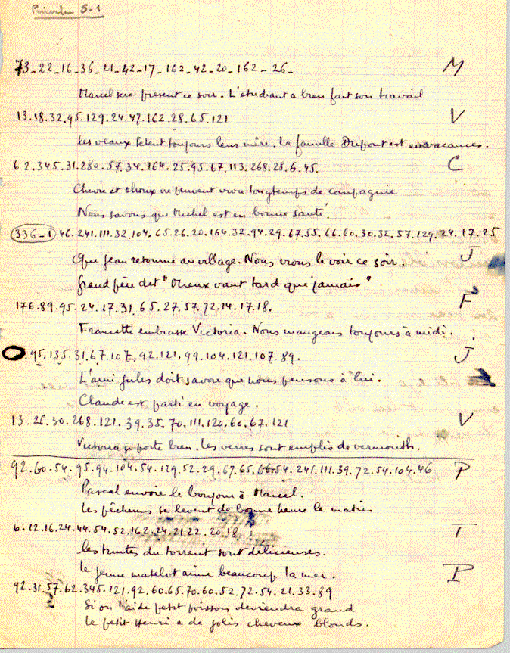 73_22_16_36_21_42_17_162_42_20_162_26_ M
Marcel sera présent ce soir. L'étudiant a bien fait son travail
13.18.32.95.129.24.47.162.28.65.121 V
Les veaux tètent toujours leurs mère. La famille Dupont est en vacances.
6.2.345.31.280.57.34.164.25.95.67.113.268.25.6.45. C
Chèvre et choux ne peuvent vivre longtemps de compagnie
Nous savons que Michel est en bonne santé.
336_1 46.241.111.32.104.65.26.20.164.32.94.29.67.55.66.60.30.32.57.129.24.17.25
Que Jean retourne au village. Nous irons le voir ce soir. J
Grand père dit "Mieux vaut tard que jamais"
176.89.95.24.17.31.65.27.57.72.14.17.18. F
Francette embrasse Victoria. Nous mangeons toujours à midi.
95.135.31.67.107.92.121.99.104.121.107.89. J
L'ami Jules doit savoir que nous pensons à lui.
Claude est parti en voyage.
13.25.30.268.121.39.35.70.111.120.60.67.121 V
Victoria se porte bien. Les verres sont emplis de vermouth.
92.60.54.95.94.104.54.129.52.29.67.65.66.54.241.111.39.72.54.104.46 P
Pascal envoie le bonjour à Marcel.
Les pêcheurs se lèvent de bonne heure le matin
6.12.16.24.44.54.52.162.24.21.22.20.18 T
Les truites du torrent sont délicieuses.
Le jeune matelot aime beaucoup la mer.
92.31.57.62.345.121.92.60.65.70.60.52.72.54.21.33.89 P
Si on l'aide petit poisson deviendra grand
Le petit Henri a de jolis cheveux blonds.